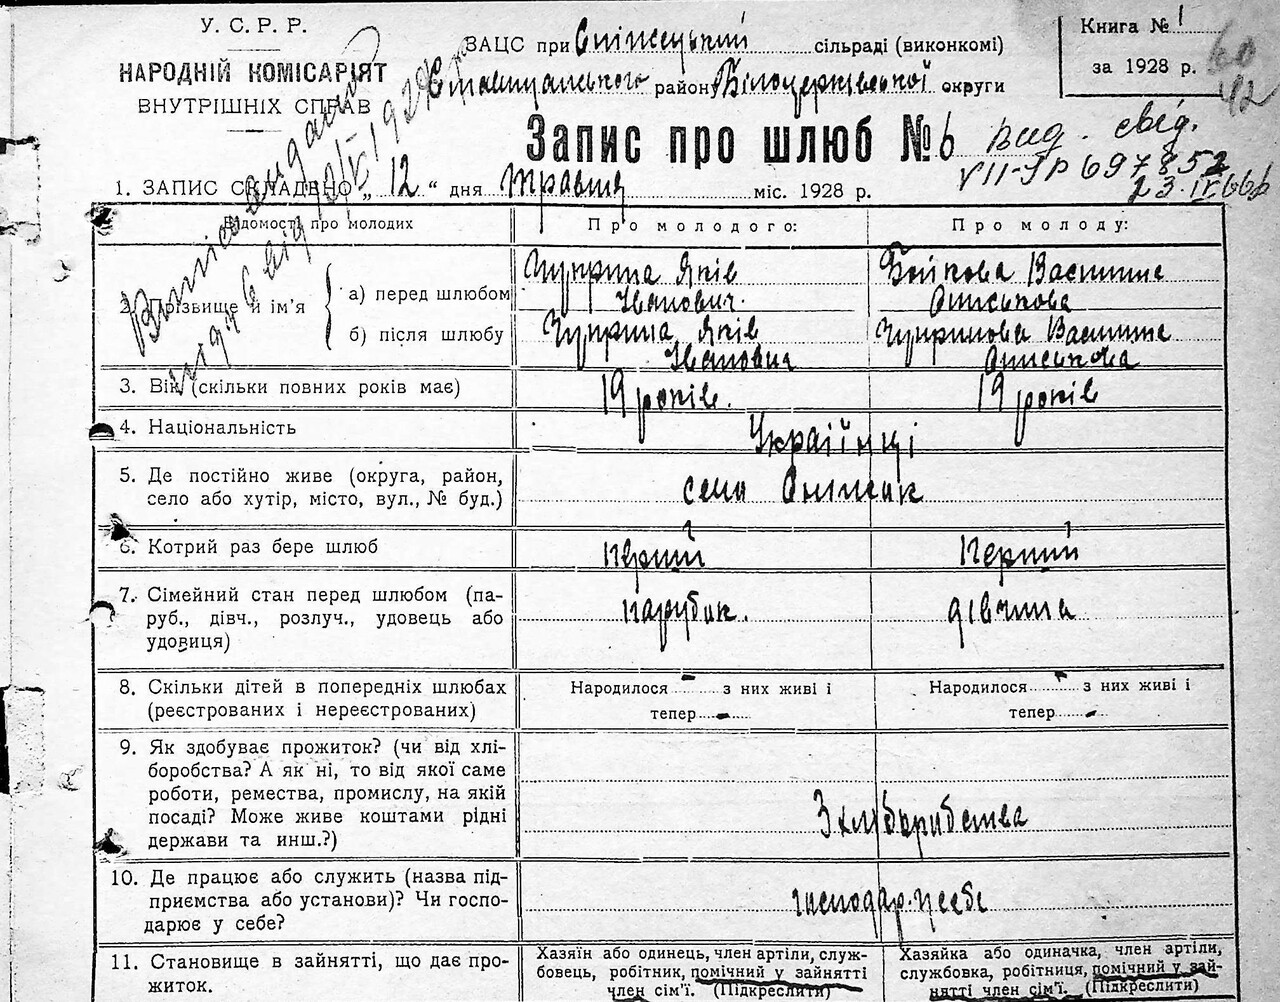 У. С. Р. Р.
НАРОДНІЙ КОМІСАРІЯТ
ВНУТРІШНІХ СПРАВ
ЗАЦС при сільраді (виконкомі)
району Білоцерківської округи
Книга № 1
за 1928 р.
60
42
Запис про шлюб № 6
вид. свід.
VII-ЈР 697852
23.IX 66р
1. ЗАПИС СКЛАДЕНО „ 12 “ дня травня міс. 1928 р.
Відомості про молодих
Про молодого:
Про молоду:
2. Прізвище й ім'я
а) перед шлюбом
Чуприна Яків
Іванович.
Бойкова Василина
б) після шлюбу
Чуприна Яків
Іванович
Чупринова Василина
3. Вік (скільки повних років має)
19 років.
19 років
4. Національність
Українці
5. Де постійно живе (округа, район,
село або хутір, місто, вул., № буд.)
село
6. Котрий раз бере шлюб
перший
перший
7. Сімейний стан перед шлюбом (па-
руб., дівч., розлуч., удовець або
удовиця)
парубок.
дівчина
8. Скільки дітей в попередніх шлюбах
(реєстрованих і нереєстрованих)
Народилося - з них живі і
тепер -
Народилося - з них живі і
тепер -
9. Як здобуває прожиток? (чи від хлі-
боробства? А як ні, то від якої саме
роботи, ремества, промислу, на якій
посаді? Може живе коштами рідні
держави та инш.?)
З хліборобства
10. Де працює або служить (назва під-
приємства або установи)? Чи госпо-
дарює у себе?
господар. у себе
11. Становище в зайнятті, що дає про-
житок.
Хазяїн або одинець, член артілі, служ-
бовець, робітник, помічний у зайнятті
член сім'ї. (Підкреслити)
Хазяйка або одиначка, член артілі,
службовка, робітниця, помічний у зай-
нятті член сім'ї. (Підкреслити)